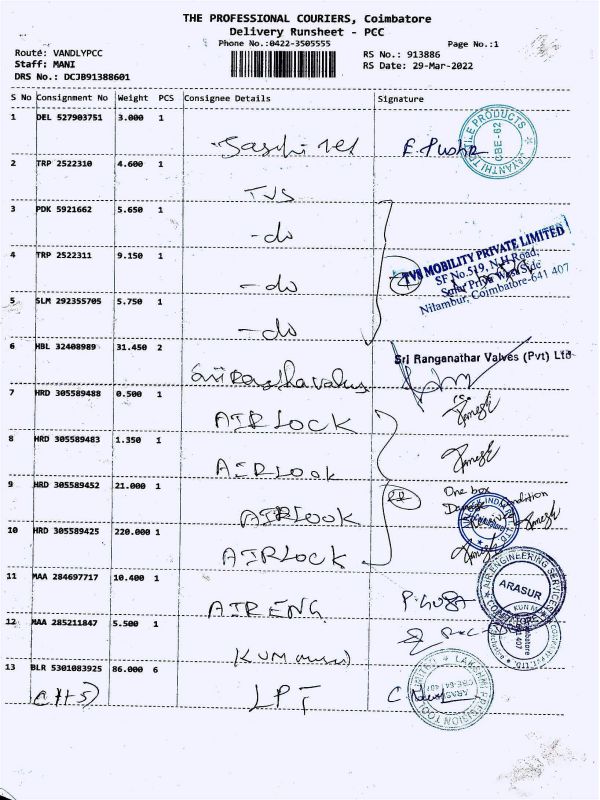 THE PROFESSIONAL COURIERS, Coimbatore
Delivery Runsheet - PCC
Phone No.:0422-3505555
Page No.:1
Route: VANDLYPCC
RS No.: 913886
Staff: MANI
RS Date: 29-Mar-2022
DRS No.: DCJB91388601
S No Consignment No Weight PCS Consignee Details Signature
1 DEL 527903751 3.000 1
JAYANTHI TILE PRODUCTS CBE-62
2 TRP 2522310 4.600 1
TVS
3 PDK 5921662 5.650 1
-do
4 TRP 2522311 9.150 1
-do
TVS MOBILITY PRIVATE LIMITED
SF No.519, N.H Road,
Nilambur, Coimbatore-641 407
5 SLM 292355705 5.750 1
-do
6 HBL 32408989 31.450 2
Sri Ranganathar Valves (Pvt) Ltd
7 HRD 305589488 0.500 1
AIR LOCK
8 HRD 305589483 1.350 1
AIRLOCK
9 HRD 305589452 21.000 1
AIRLOCK
One box
Condition
10 HRD 305589425 220.000 1
AIRLOCK
11 MAA 284697717 10.400 1
AIR ENG
AIR ENGINEERING SERVICES ARASUR
12 MAA 285211847 5.500 1
13 BLR 5301083925 86.000 6
LPT